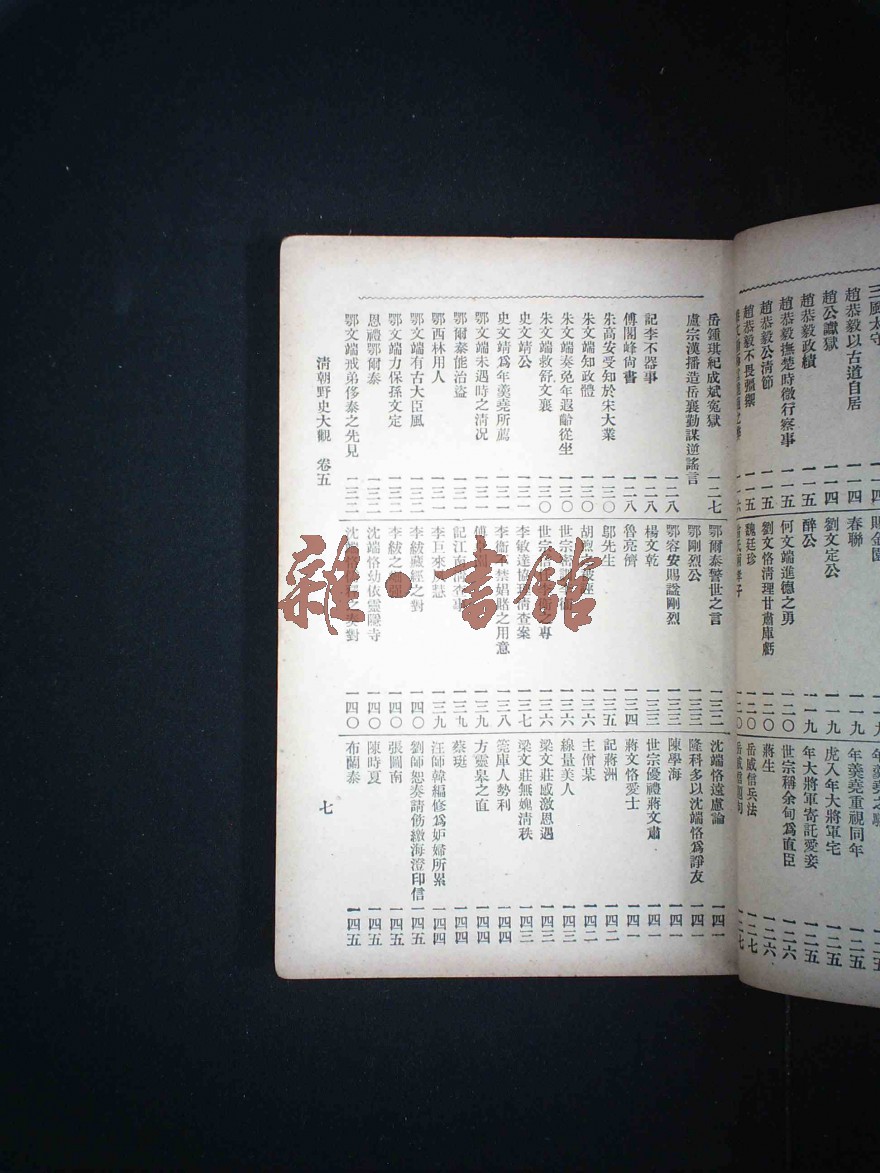 三風太守
趙恭毅以古道自居 一一四
趙公讞獄 一一四
趙恭毅政績 一一五
趙恭毅撫楚時微行察事 一一五
趙恭毅公清節 一一五
趙恭毅不畏彊禦 一一五
一一六
賜金園
春聯 一一九
劉文定公 一一九
醉公 一一九
何文端進德之勇 一二〇
劉文恪清理甘肅庫虧 一二〇
魏廷珍 一二〇
一二〇
年羹堯重視同年 一二五
虎入年大將軍宅 一二五
年大將軍寄託愛妾 一二五
世宗稱余甸為直臣 一二六
蔣生 一二六
岳威信兵法 一二七
岳威信 一二七
岳鍾琪紀成斌冤獄 一二七
盧宗漢播造岳襄勤謀逆謠言 一二八
記李不器事 一二八
傅閣峰尚書 一二八
朱高安受知於宋大業 一三〇
朱文端知政體 一三〇
朱文端奏免年遐齡從坐 一三〇
朱文端救舒文襄 一三〇
史文靖公 一三一
史文靖為年羹堯所薦 一三一
鄂文端未遇時之清况 一三一
鄂爾泰能治盜 一三一
鄂西林用人 一三一
鄂文端有古大臣風 一三二
鄂文端力保孫文定 一三二
恩禮鄂爾泰 一三二
鄂文端戒弟侈泰之先見 一三二
鄂爾泰警世之言 一三二
鄂剛烈公 一三三
鄂容安賜諡剛烈 一三三
楊文乾 一三三
魯亮儕 一三四
鄔先生 一三五
胡 一三六
世宗 一三六
世宗 之專 一三六
李敏達協理清查案 一三七
李衞 禁娼賭之用意 一三八
傅 一三九
記江南清查事 一三九
李巨來 慧 一三九
李紱藏經之對 一四〇
李紱之 一四〇
沈端恪幼依靈隱寺 一四〇
沈端恪 之 對 一四〇
沈端恪遠慮論 一四一
隆科多以沈端恪為諍友 一四一
陳學海 一四一
世宗優禮蔣文肅 一四一
蔣文恪愛士 一四一
記蔣洲 一四二
主僧某 一四二
線量美人 一四二
梁文莊感激恩遇 一四三
梁文莊無媿清秩 一四三
筦庫人勢利 一四四
方靈皋之直 一四四
蔡珽 一四四
汪師韓編修為妒婦所累 一四四
劉師恕奏請飭繳海澄印信 一四五
張圖南 一四五
陳時夏 一四五
布蘭泰 一四五
清朝野史大觀 卷五
七
雜·書館